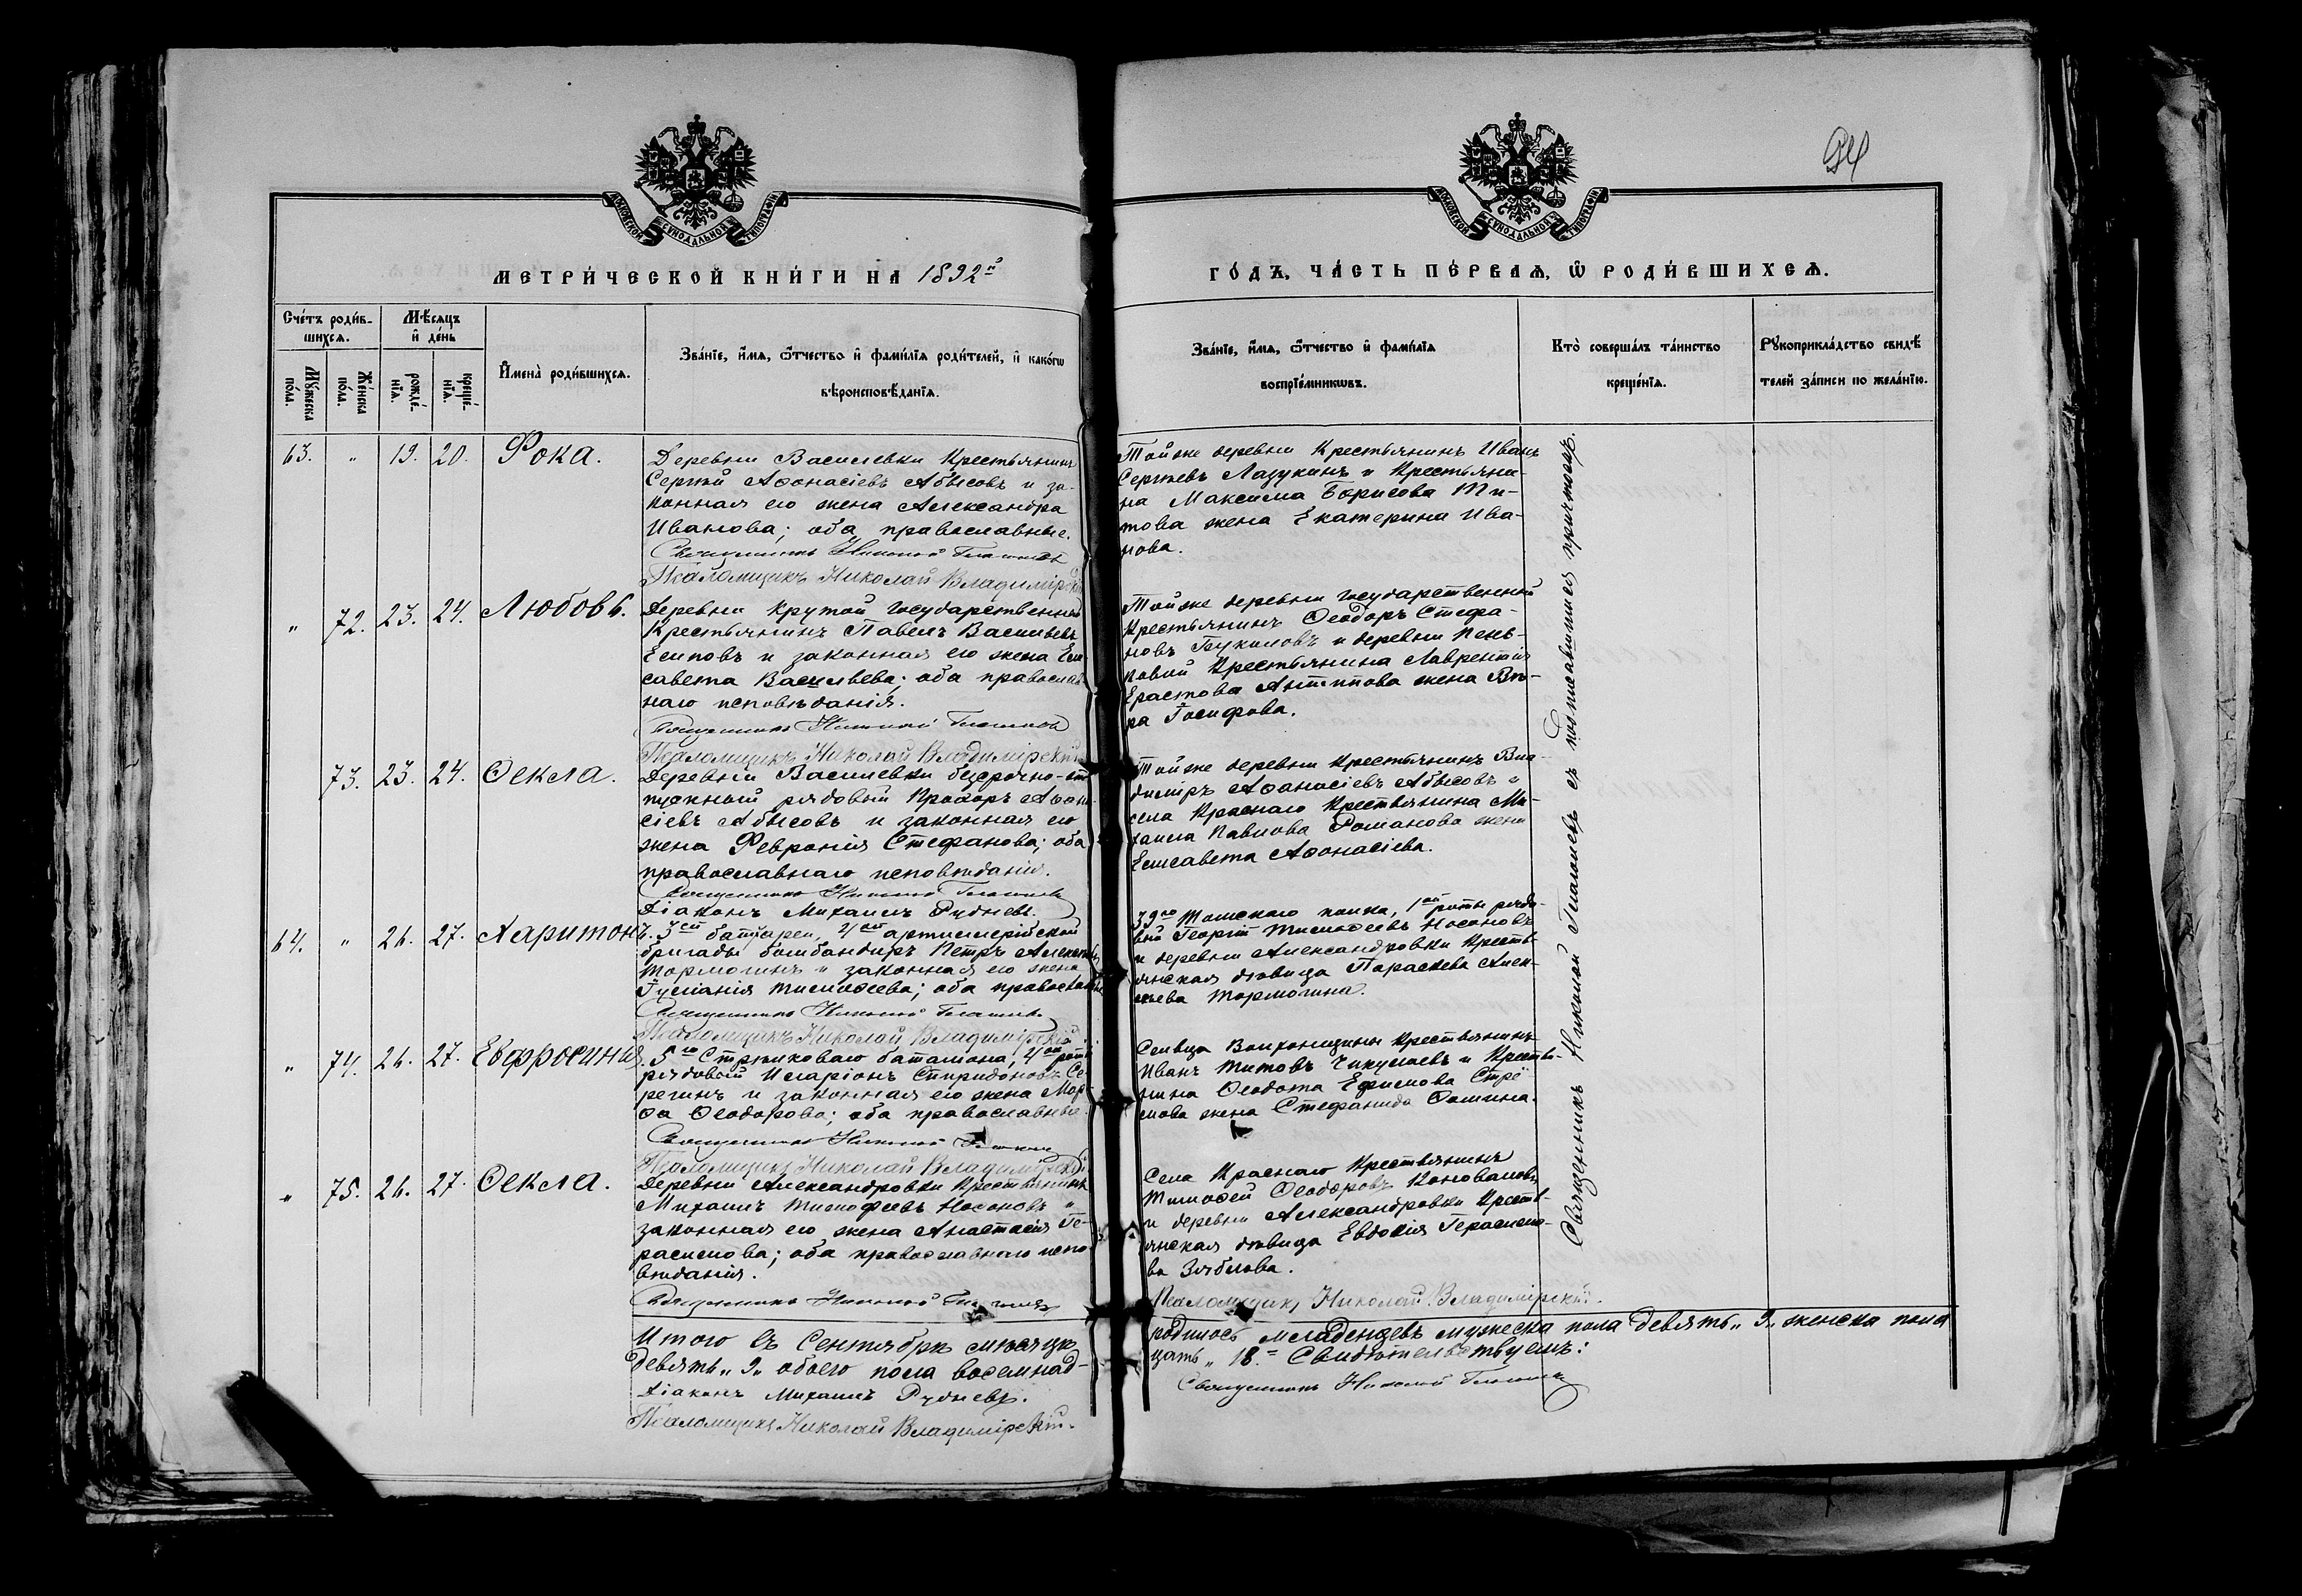 94
МОСКОВСКОЙ СУНОДАЛЬНОЙ ТИПОГРАФІИ
МОСКОВСКОЙ СУНОДАЛЬНОЙ ТИПОГРАФІИ
МЕТРИ́ЧЕСКОЙ КНИ́ГИ НА 1892й
ГО́ДЪ, ЧА́СТЬ ПЕ́РВАѦ, Ѡ҆ РОДИ́ВШИХСѦ.
Сче́тъ роди́в-
шихсѧ.
Мѣ́сѧцъ
и҆ де́нь
Мꙋ́жеска
по́ла.
Же́нска
по́ла.
рожде́-
нїѧ.
креще́-
нїѧ.
И҆мена̀ роди́вшихсѧ.
Зва́нїе, и҆́мѧ, ѻ҆́тчество и҆ фами́лїѧ роди́телей, и҆ како́гѡ
вѣроисповѣ́данїѧ.
Зва́нїе, и҆́мѧ, ѻ҆́тчество и҆ фами́лїѧ
воспрїе́мникѡвъ.
Кто̀ соверша́лъ та́инство
креще́нїѧ.
Рꙋкоприкла́дство свидѣ́
телей за́писи по жела́нїю.
63. " 19. 20. Фока.
Деревни Василевки Крестьянинъ
Сергѣй Аѳонасіевъ Абысовъ и за-
конная его жена Александра
Иванова; оба православные.
Священникъ Николай
Псаломщикъ Николай Владимірскій
Тойже деревни Крестьянинъ Иванъ
Сергѣевъ Лазукинъ и Крестьяни-
на Максима Борисова Ти-
това жена Екатерина Ива-
нова.
" 72. 23. 24. Любовь.
Деревни Крутой Государственный
Крестьянинъ Павелъ Васильевъ
Есиповъ и законная его жена Ели-
савета Васильева; оба православ-
наго исповѣданія.
Священникъ Николай
Псаломщикъ Николай Владимірскій
Тойже деревни Государственный
Крестьянинъ Ѳеодоръ Стефа-
новъ и деревни
Крестьянина Лаврентія
Ерастова Антипова жена
Іосифова.
73. 23. 24. Ѳекла.
Деревни Василевки безсрочно-от
пускной рядовый Прохоръ Аѳона
сіевъ Абысовъ и законная его
жена Февронія Стефанова; оба
православнаго исповѣданія.
Священникъ Николай
Діаконъ Михаилъ Рудневъ.
Тойже деревни Крестьянинъ Вла-
диміръ Аѳанасіевъ Абысовъ и
села Краснаго Крестьянина Ми-
хаила Павлова Романова жена
Елисавета Аѳонасіева.
64. " 26. 27. Харитонъ.
3ей батареи, 4ой артиллерійской
бригады бомбандиръ Петръ Алексѣевъ
Тормозинъ и законная его жена
Іуліанія Тимоѳеева; оба православные
Священникъ Николай
Псаломщикъ Николай Владимірскій
39го Томскаго полка, 1ой роты рядо-
вый Георгій Тимоѳеевъ Носоновъ
и деревни Александровки Кресть-
янская дѣвица Параскева Алек-
сѣева Тормозина.
" 74. 26. 27. Евфросинія.
5го Стрѣлковаго баталіона, 4ой роты
рядовый Иларіонъ Спиридоновъ Се-
регинъ и законная его жена Мар-
ѳа Ѳеодорова; оба православные
Священникъ Николай
Псаломщикъ Николай Владимірскій
Сельца Крестьянинъ
Иванъ Титовъ и Кресть-
нина Ѳеодота Ефимова
жена Стефанида Ѳомина.
" 75. 26. 27. Ѳекла.
Деревни Александровки Крестьянинъ
Михаилъ Тимоѳеевъ Носоновъ и
законная его жена Анастасія Ге-
расимова; оба православнаго испо-
вѣданія.
Священникъ Николай
Села Краснаго Крестьянинъ
Тимоѳей Ѳеодоровъ Коноваловъ
и деревни Александровки Кресть-
янская дѣвица Евдокія Герасимо-
ва Зяблова.
Псаломщикъ Николай Владимірскій.
Священникъ Николай съ подписавшимися причтомъ.
Итого въ Сентябрѣ мѣсяцѣ родилось младенцевъ мужеска пола девять „9„ женска пола
девять „9„ обоего пола восемнад- цать „18.= Свидѣтельствуемъ:
Священникъ Николай
Діаконъ Михаилъ Рудневъ.
Псаломщикъ Николай Владимірскій.